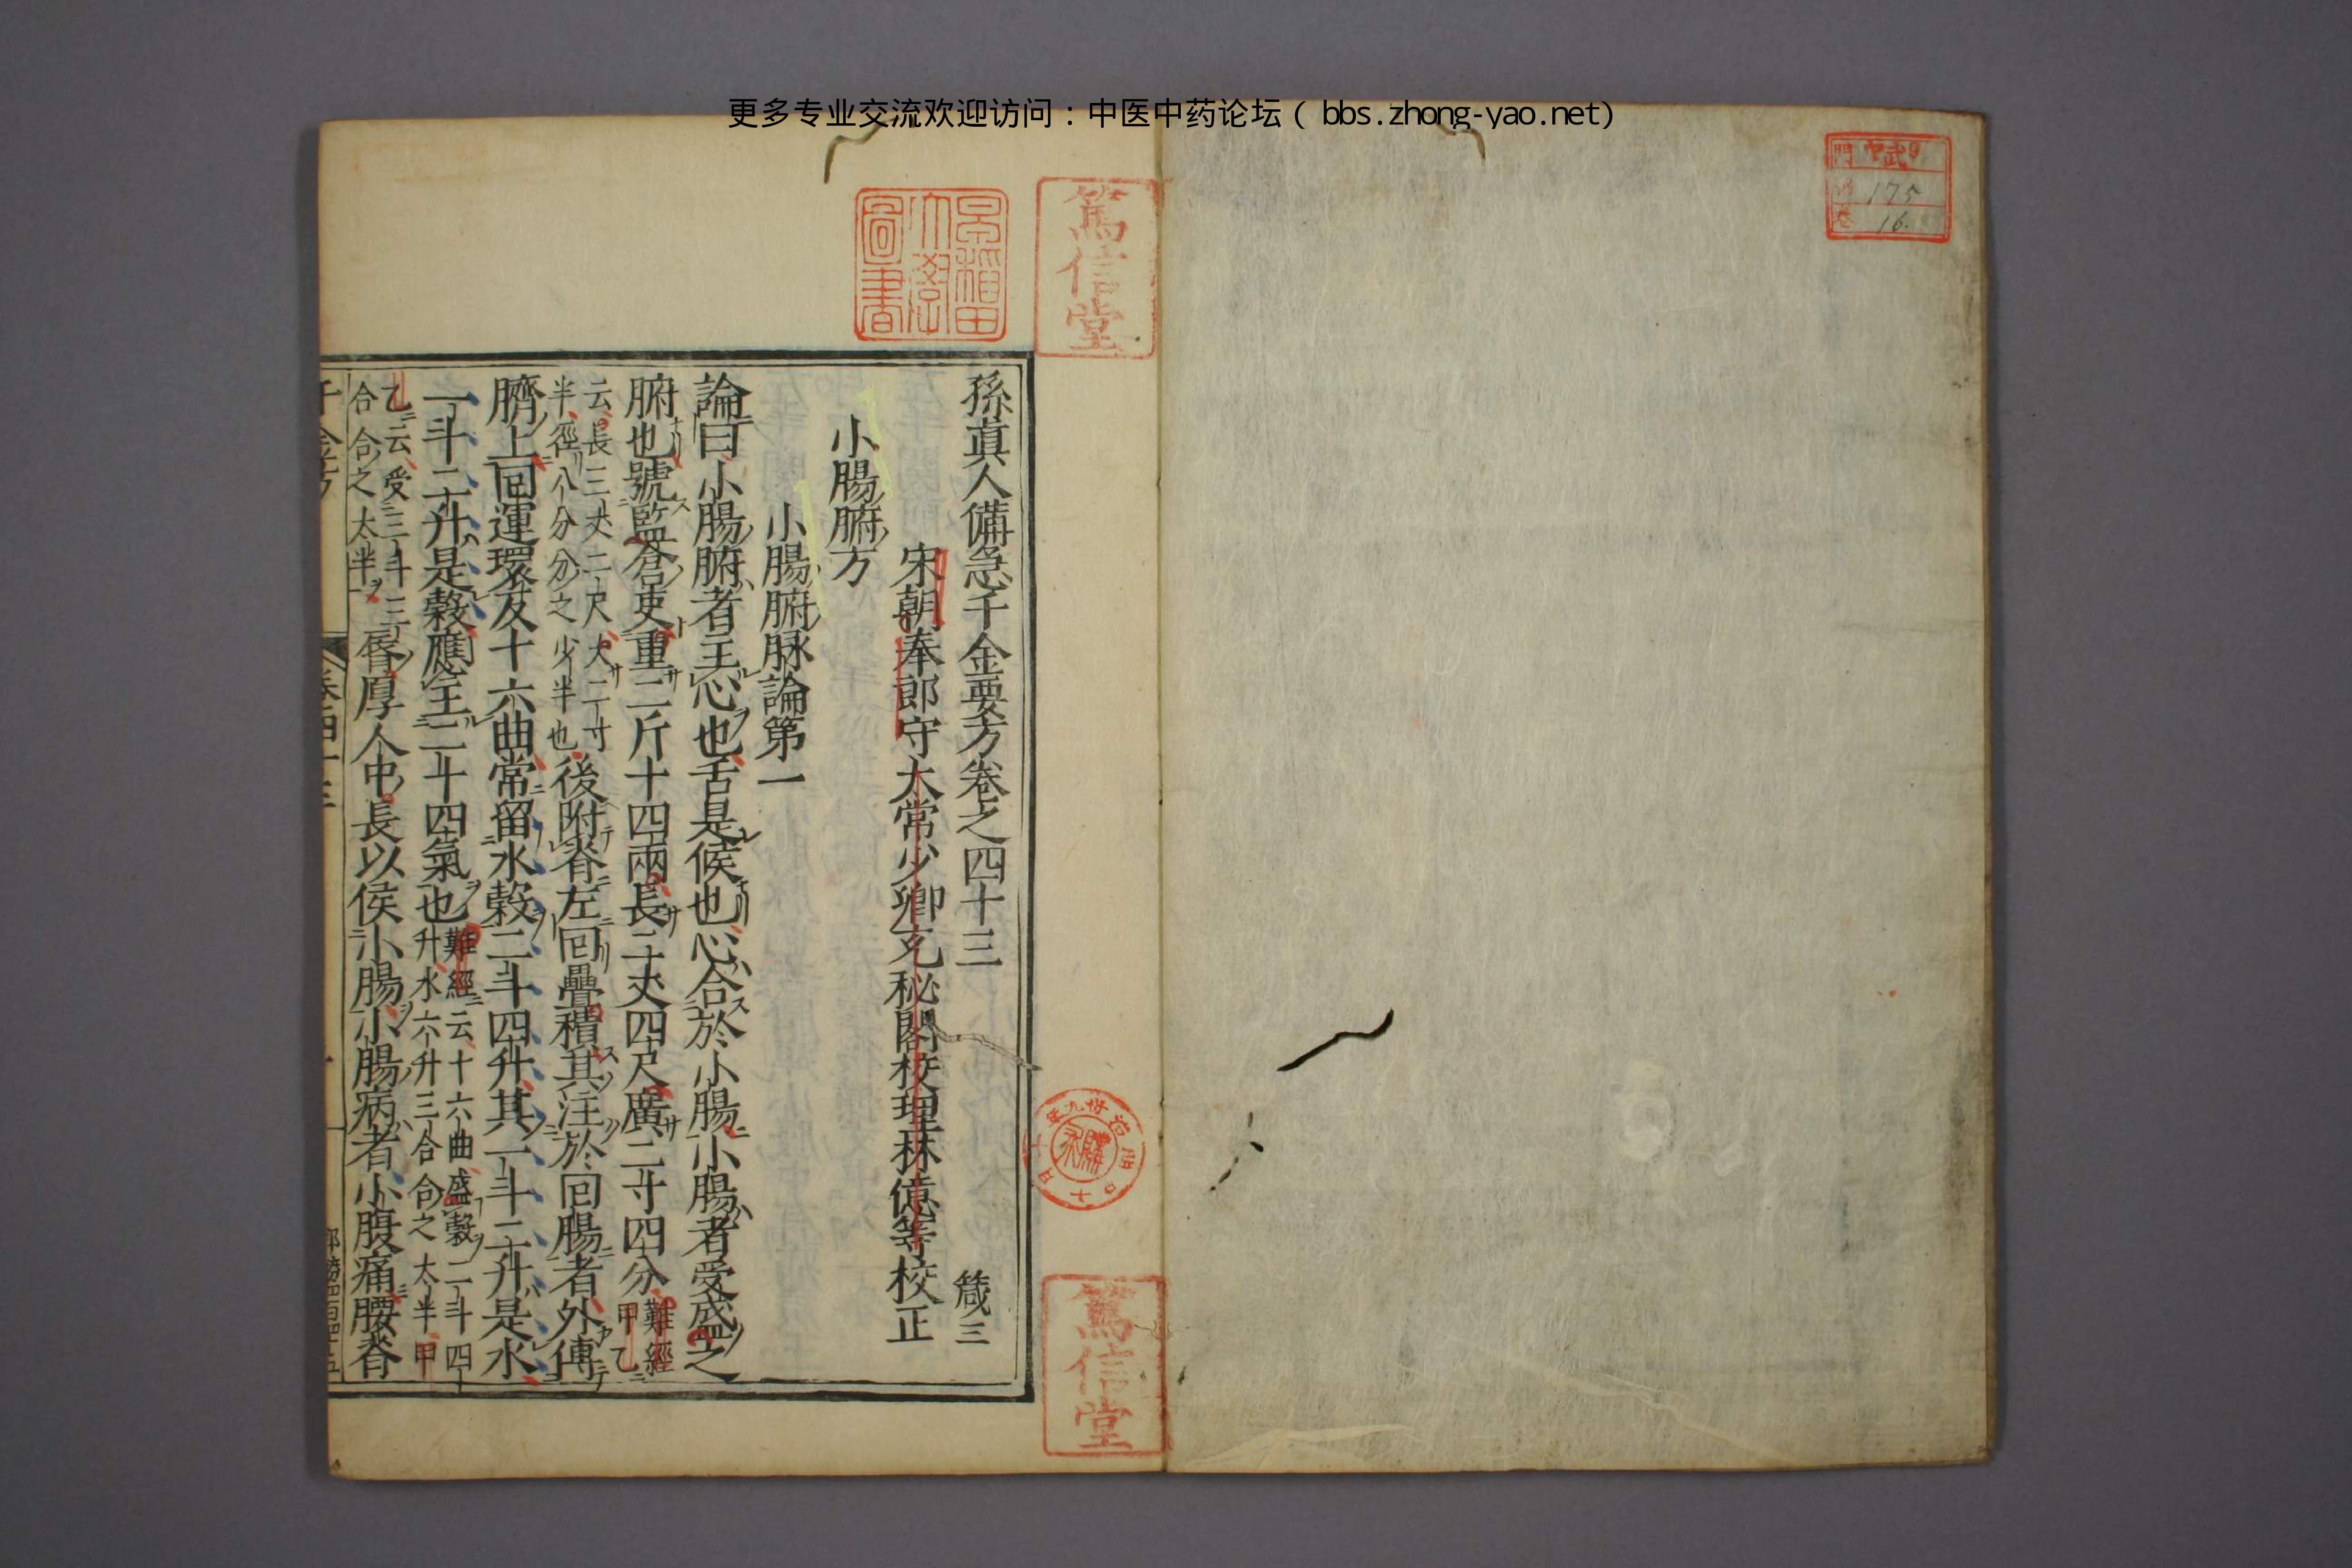 更多专业交流欢迎访问：中医中药论坛（bbs.zhong-yao.net）
武
門
175
卷 16.
篤信堂
早稻田大學圖書
孫真人備急千金要方卷之四十三 箴三
宋朝奉郎守太常少卿充秘閣校理林億等校正
小腸腑方
小腸腑脉論第一
論曰小腸腑者主心也舌是候也心合於小腸小腸者受盛之
腑也號監倉吏重二斤十四兩長二丈四尺廣二寸四分難經甲乙
云長三丈二尺大二寸半徑八分分之少半也後附脊左回疊積其注於回腸者外傅
臍上回運環反十六曲常留水穀二斗四升其一斗二升是水
一斗二升是穀應主二十四氣也難經云十六曲盛穀二斗四升水六升三合合之太半甲
乙云受三斗三合合之太半脣厚人中長以候小腸小腸病者小腹痛腰脊
千金方
卷四十三
一
篤信堂
明治卅九年十月十日
購求